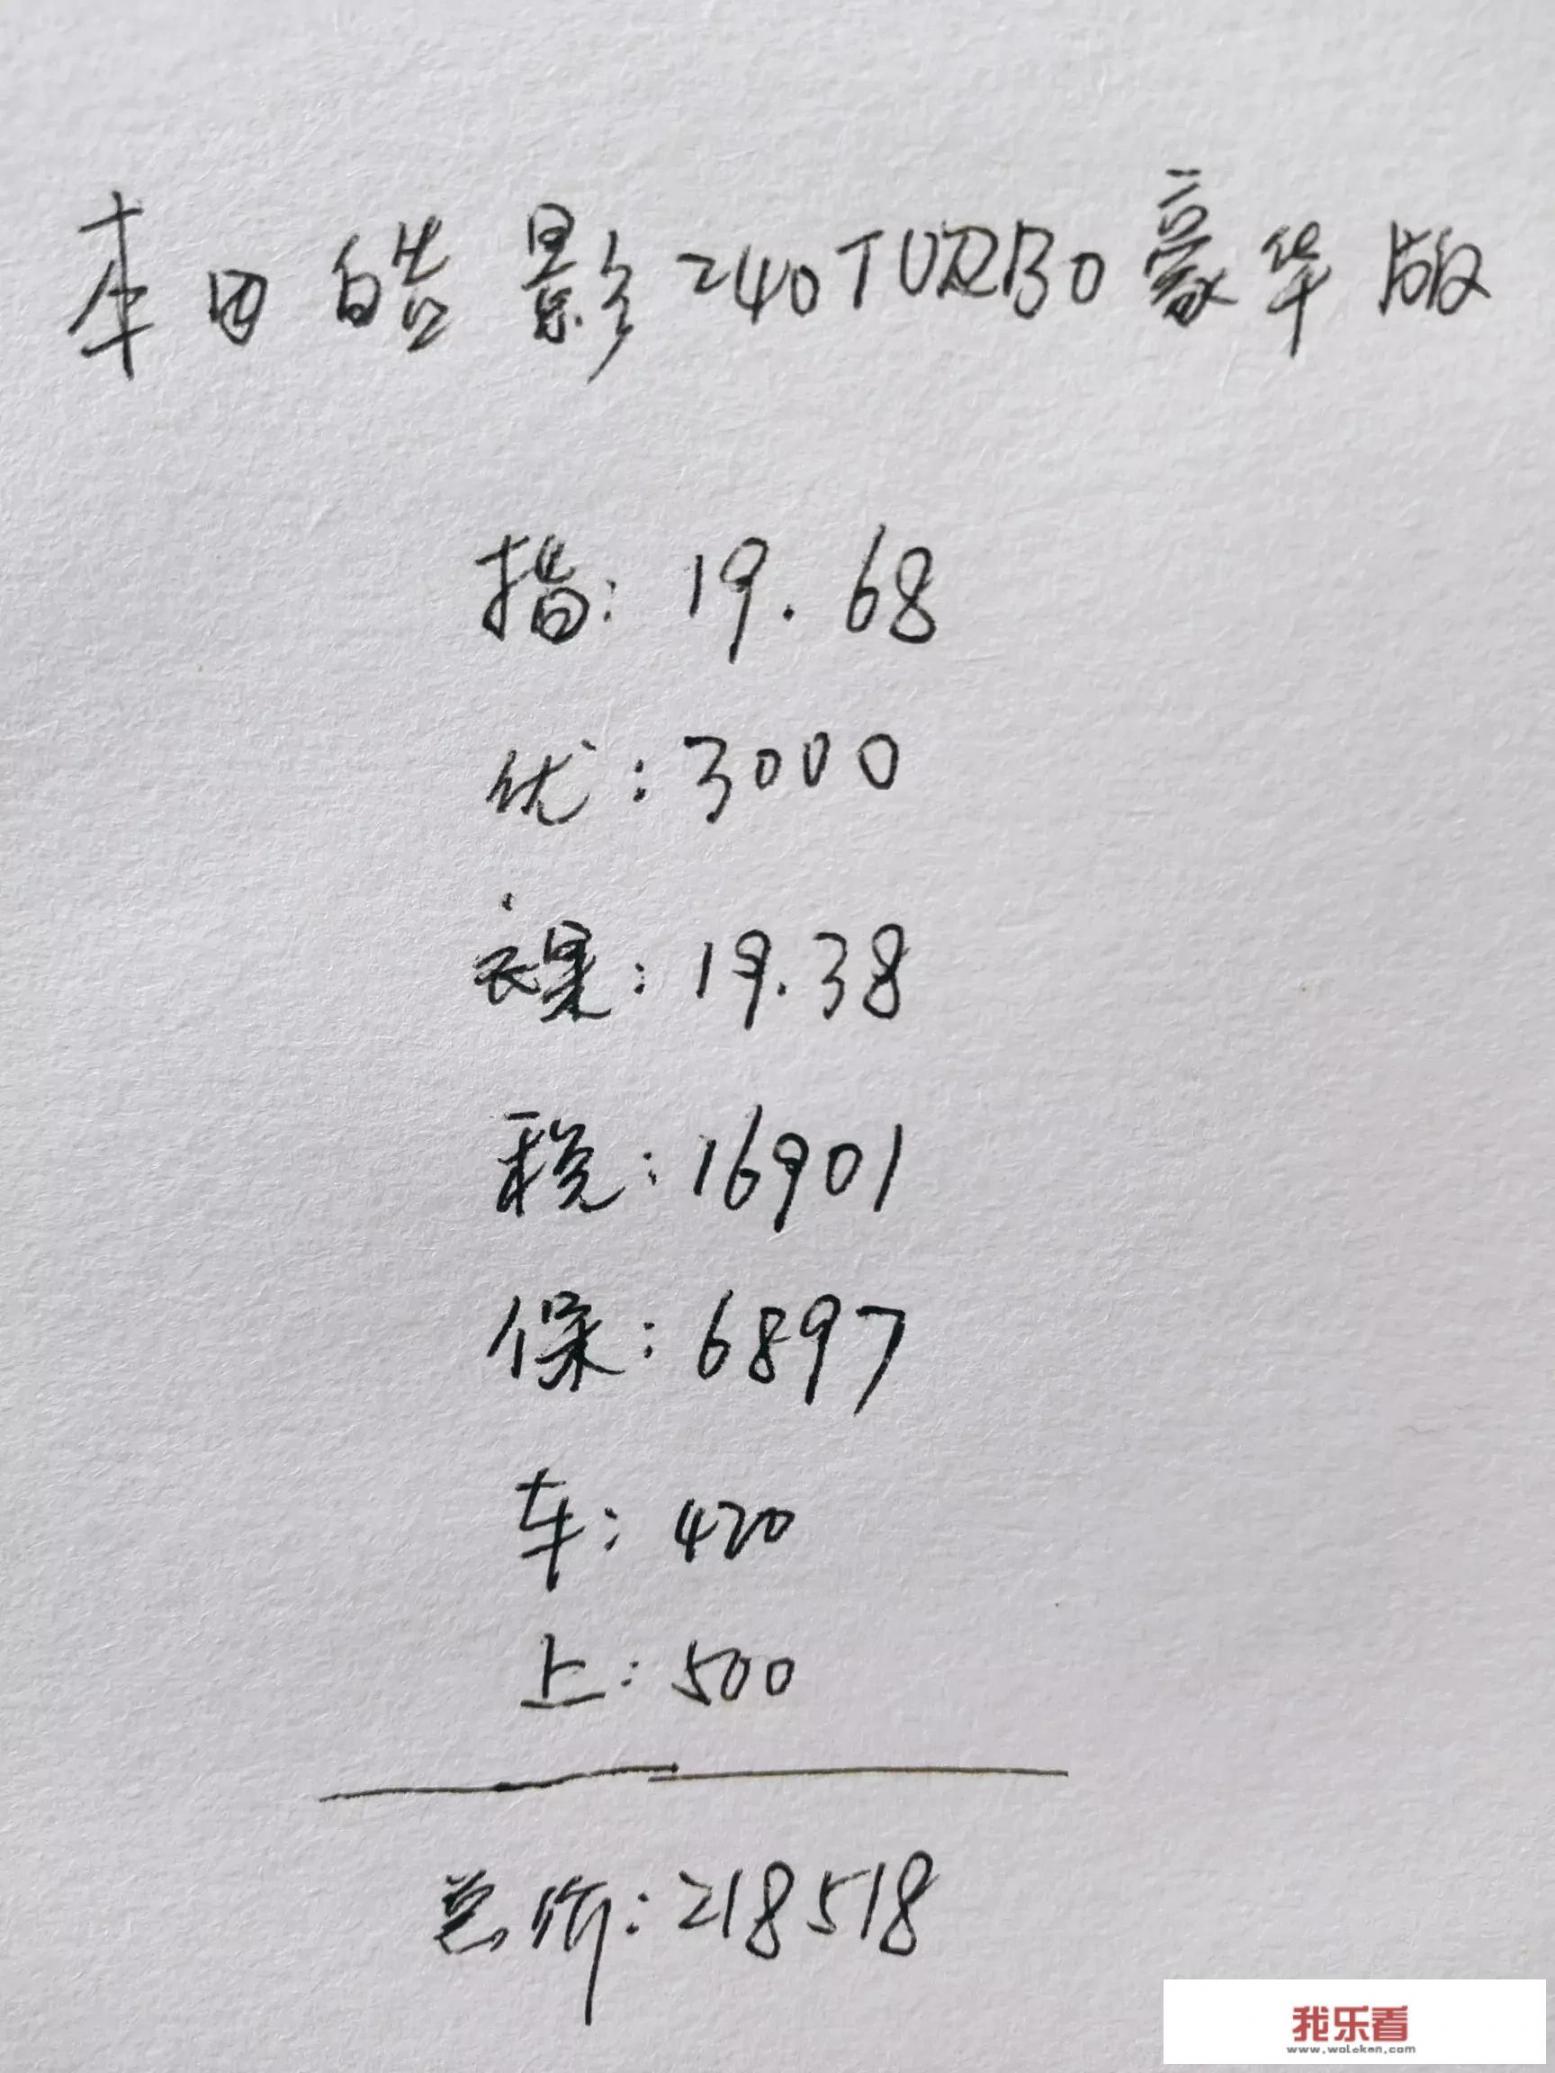 本田皓影240TURBO豪华版
指:19.68
优:3000
裸:19.38
税:16901
保:6897
车:420
上:500
总价:218518
我乐看
www.woleken.com